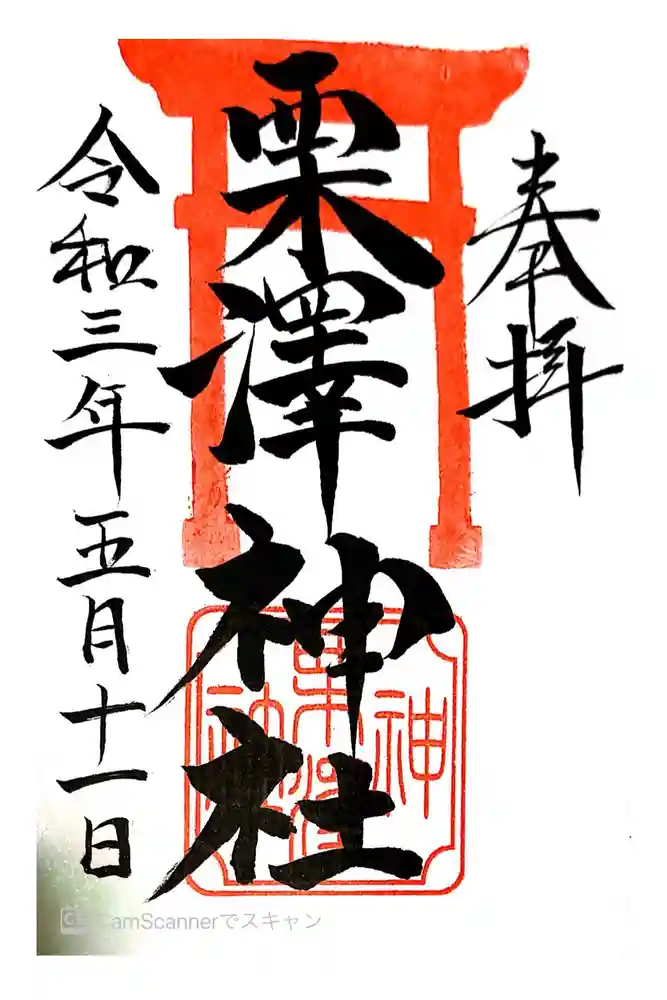 奉拝
栗澤神社
令和三年五月十一日
CamScannerでスキャン